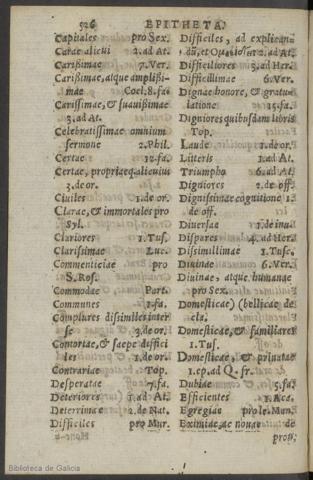 526 EPITHETA.
Capitales pro Sex.
Caræ alicui 2. ad At.
Carißimæ 7. Ver.
Carißimæ, atque amplißi-
mæ Coel. 8. fa.
Carissimæ, & suauißimæ
3. ad At.
Celebratissimæ omnium
sermone 2. Phil.
Certæ 12. fa.
Certæ, propriæq; alicuius
3. de or.
Ciuiles 1. de or.
Claræ, & immortales pro
Syl.
Clariores 1. Tus.
Clarißimæ Luc.
Commenticiæ pro
S. Ros.
Commodæ Part.
Communes 1. fa.
Complures dißimiles inter
se 3. de or.
Contortæ, & sæpe diffici
les 1. de or.
Contrariæ Top.
Desperatæ 7. fa.
Deteriores 1. ad At.
Deterrimæ 2. de Nat.
Difficiles pro Mur.
Difficiles, ad explican-
dū, et 2. ad At.
Difficiliores 3. ad Her.
Difficillimæ 6. Ver.
Dignæ honore, & gratu-
latione 15. fa.
Digniores quibusdam libris
Top.
Laude 1. de or.
Litteris 1. ad At.
Triumpho 6. ad At.
Digniores 2. de off.
Dignißimæ cognitione 1.
de off.
Diuersæ 1. de inu.
Dispares 4. ad Her.
Dissimillimæ 1. Tusc.
Diuinæ 6. Ver.
Diuinæ, atque humanæ
pro Sex.
Domesticæ) (bellicæ de
cla.
Domesticæ, & familiares
1. Tus.
Domesticæ, & priuatæ
1. ep. ad Q. fr.
Dubiæ 5. fa.
Efficientes 1. Aca.
Egregiæ pro le. Man.
Eximiæ, ac nouæ de
pro-
Biblioteca de Galicia